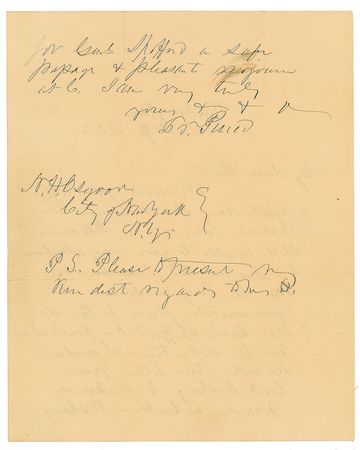 for Genl Spofford a safe
passage & pleasant sojourn
at C. I am very truly
yours & & &
Fr. Pierce
N. H. Osgood
City of New York
N. Y.
P. S. Please to present my
kindest regards to Mrs O.